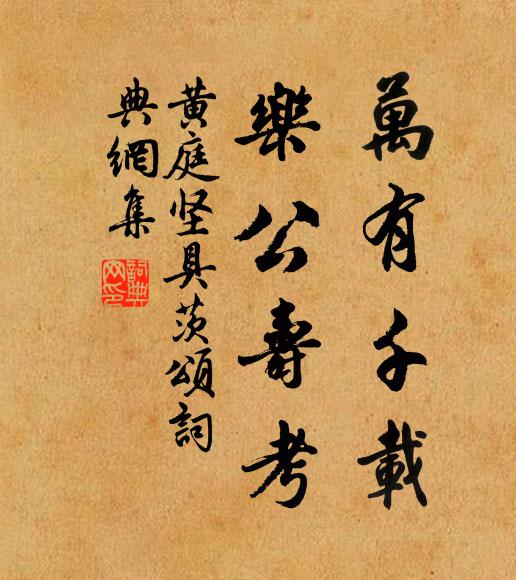 萬有千載
樂公壽考
黄庭坚具茨頌詞
典網集
詞典
网印